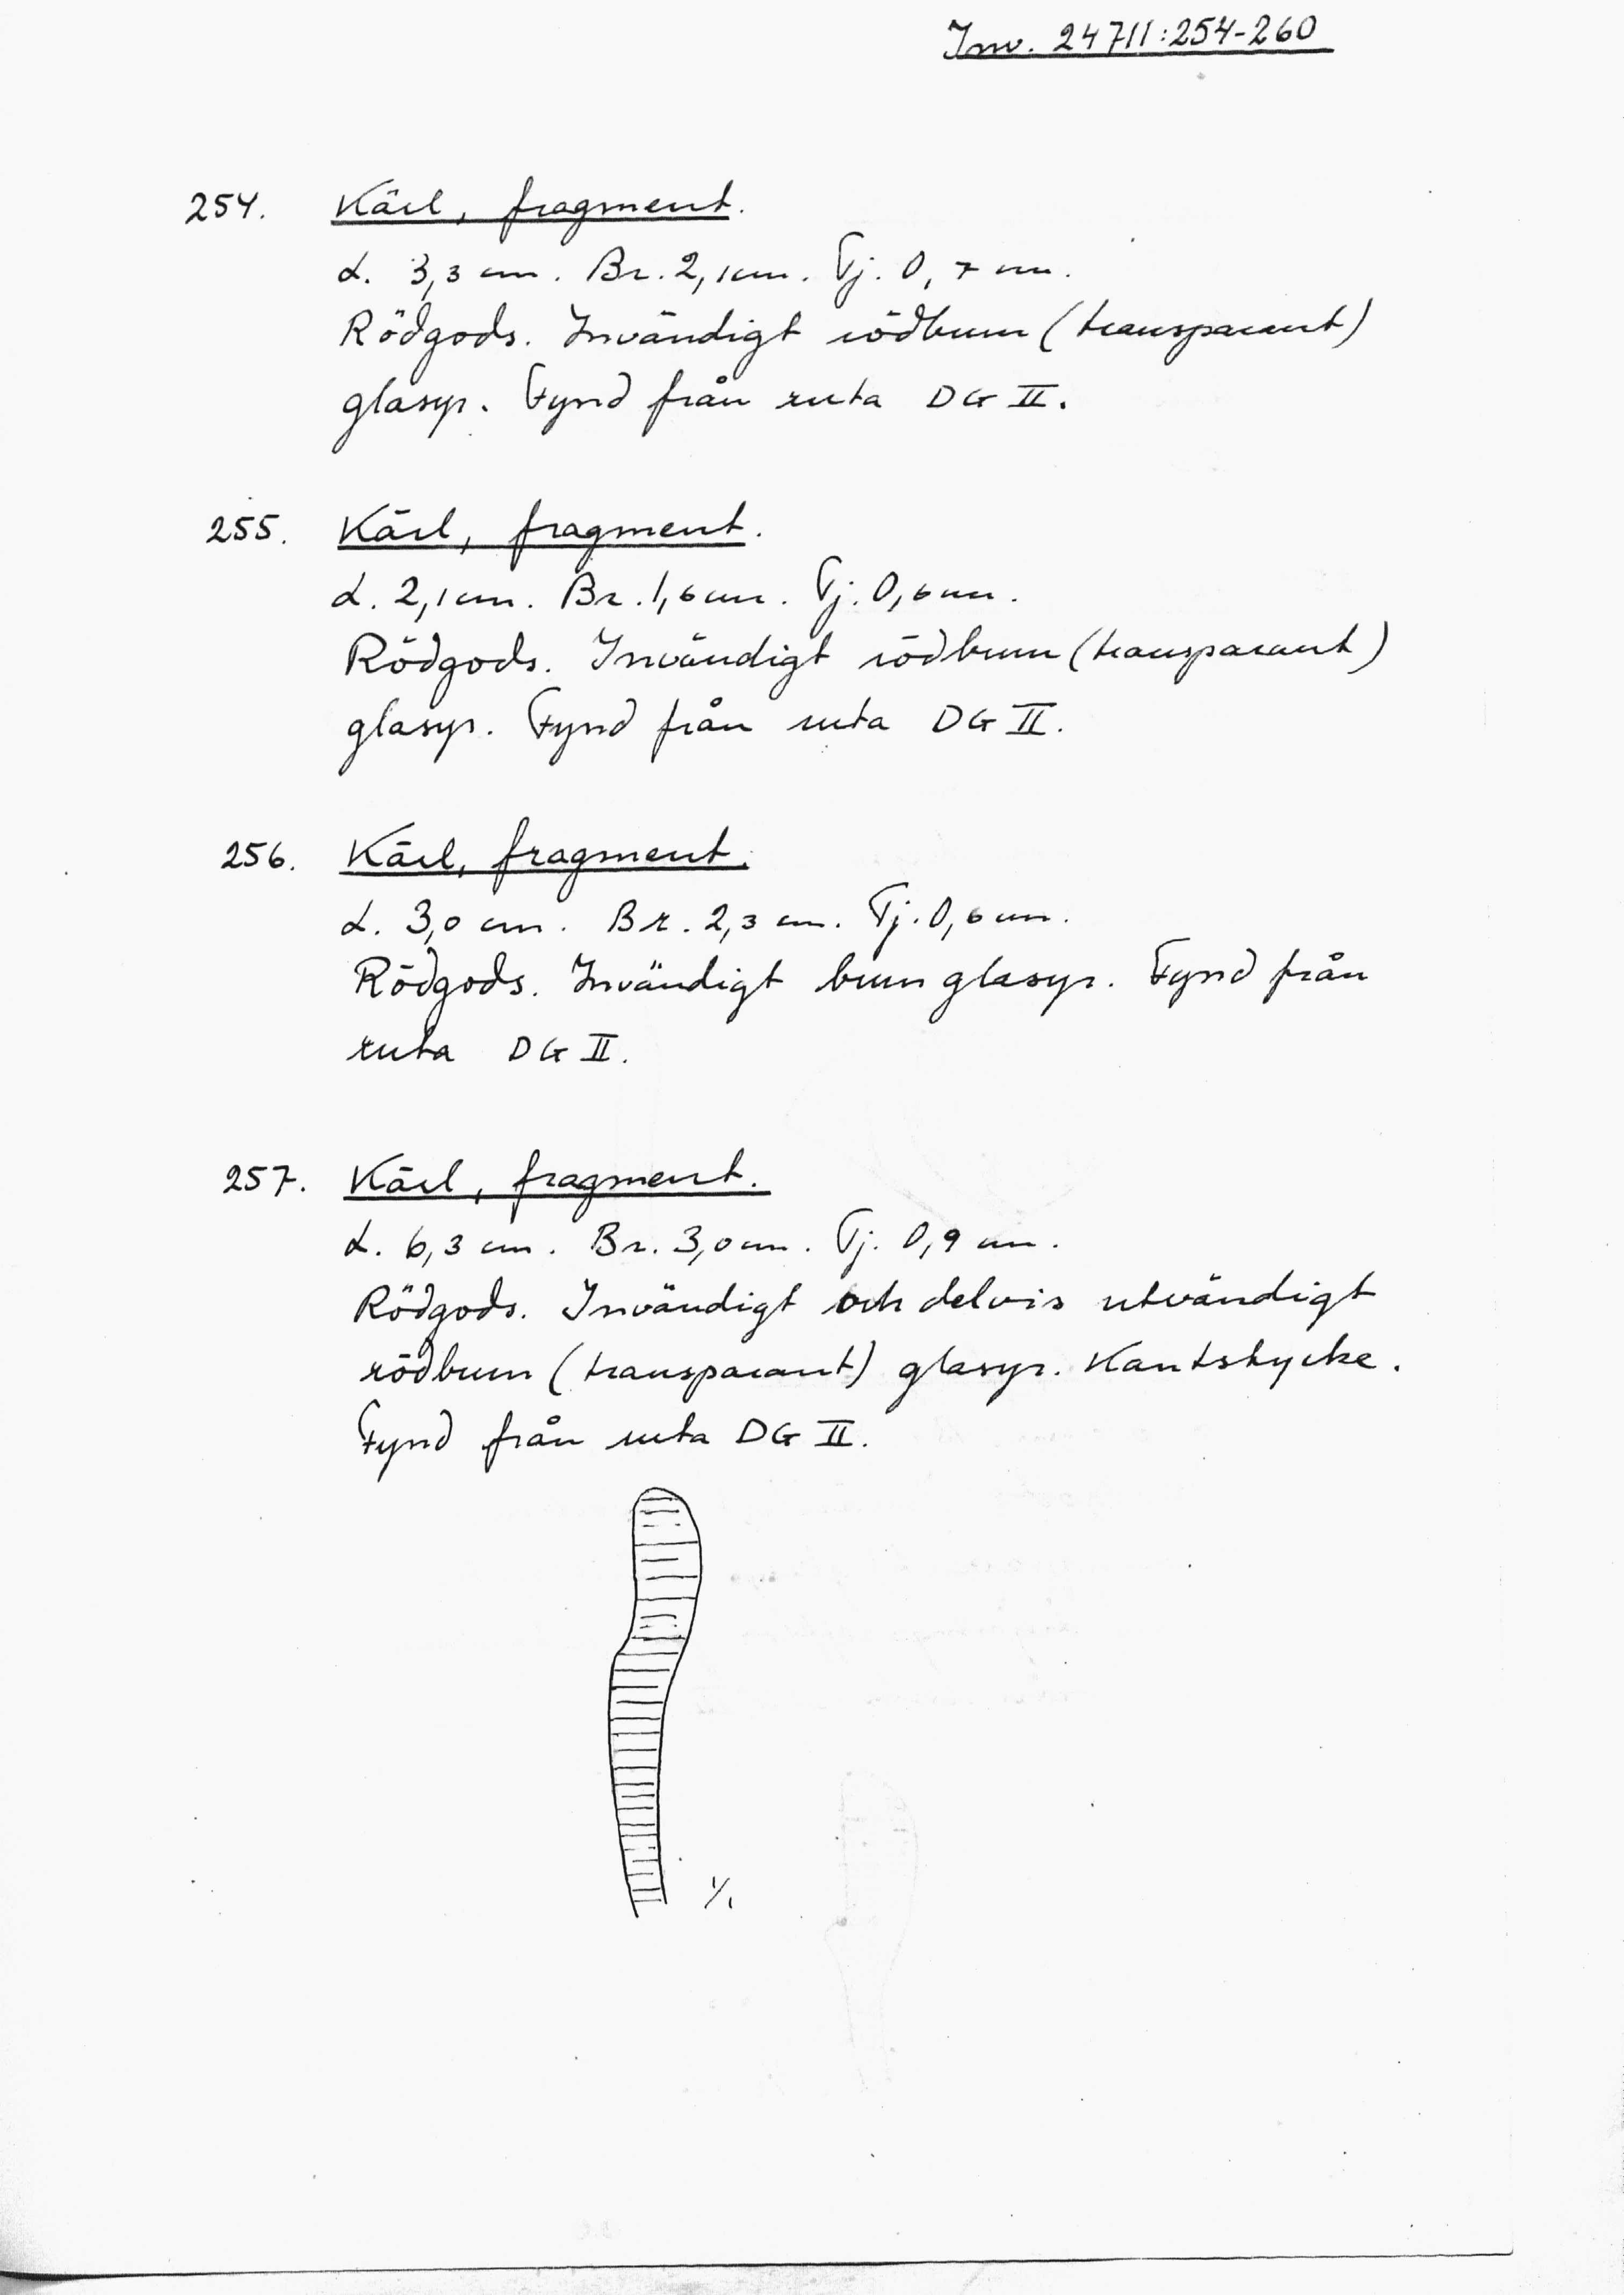 Inv. 24711:254-260
254. Kärl, fragment.
L. 3,3 cm. Br. 2,1 cm. Tj. 0,7 cm.
Rödgods. Invändigt rödbrun (transparant)
glasyr. Fynd från ruta DG II.
255. Kärl, fragment.
L. 2,1 cm. Br. 1,6 cm. Tj. 0,6 cm.
Rödgods. Invändigt rödbrun (transparant)
glasyr. Fynd från ruta DG II.
256. Kärl, fragment.
L. 3,0 cm. Br. 2,3 cm. Tj. 0,6 cm.
Rödgods. Invändigt brun glasyr. Fynd från
ruta DG II.
257. Kärl, fragment.
L. 6,3 cm. Br. 3,0 cm. Tj. 0,9 cm.
Rödgods. Invändigt och delvis utvändigt
rödbrun (transparant) glasyr. Kantstycke.
Fynd från ruta DG II.
1/1